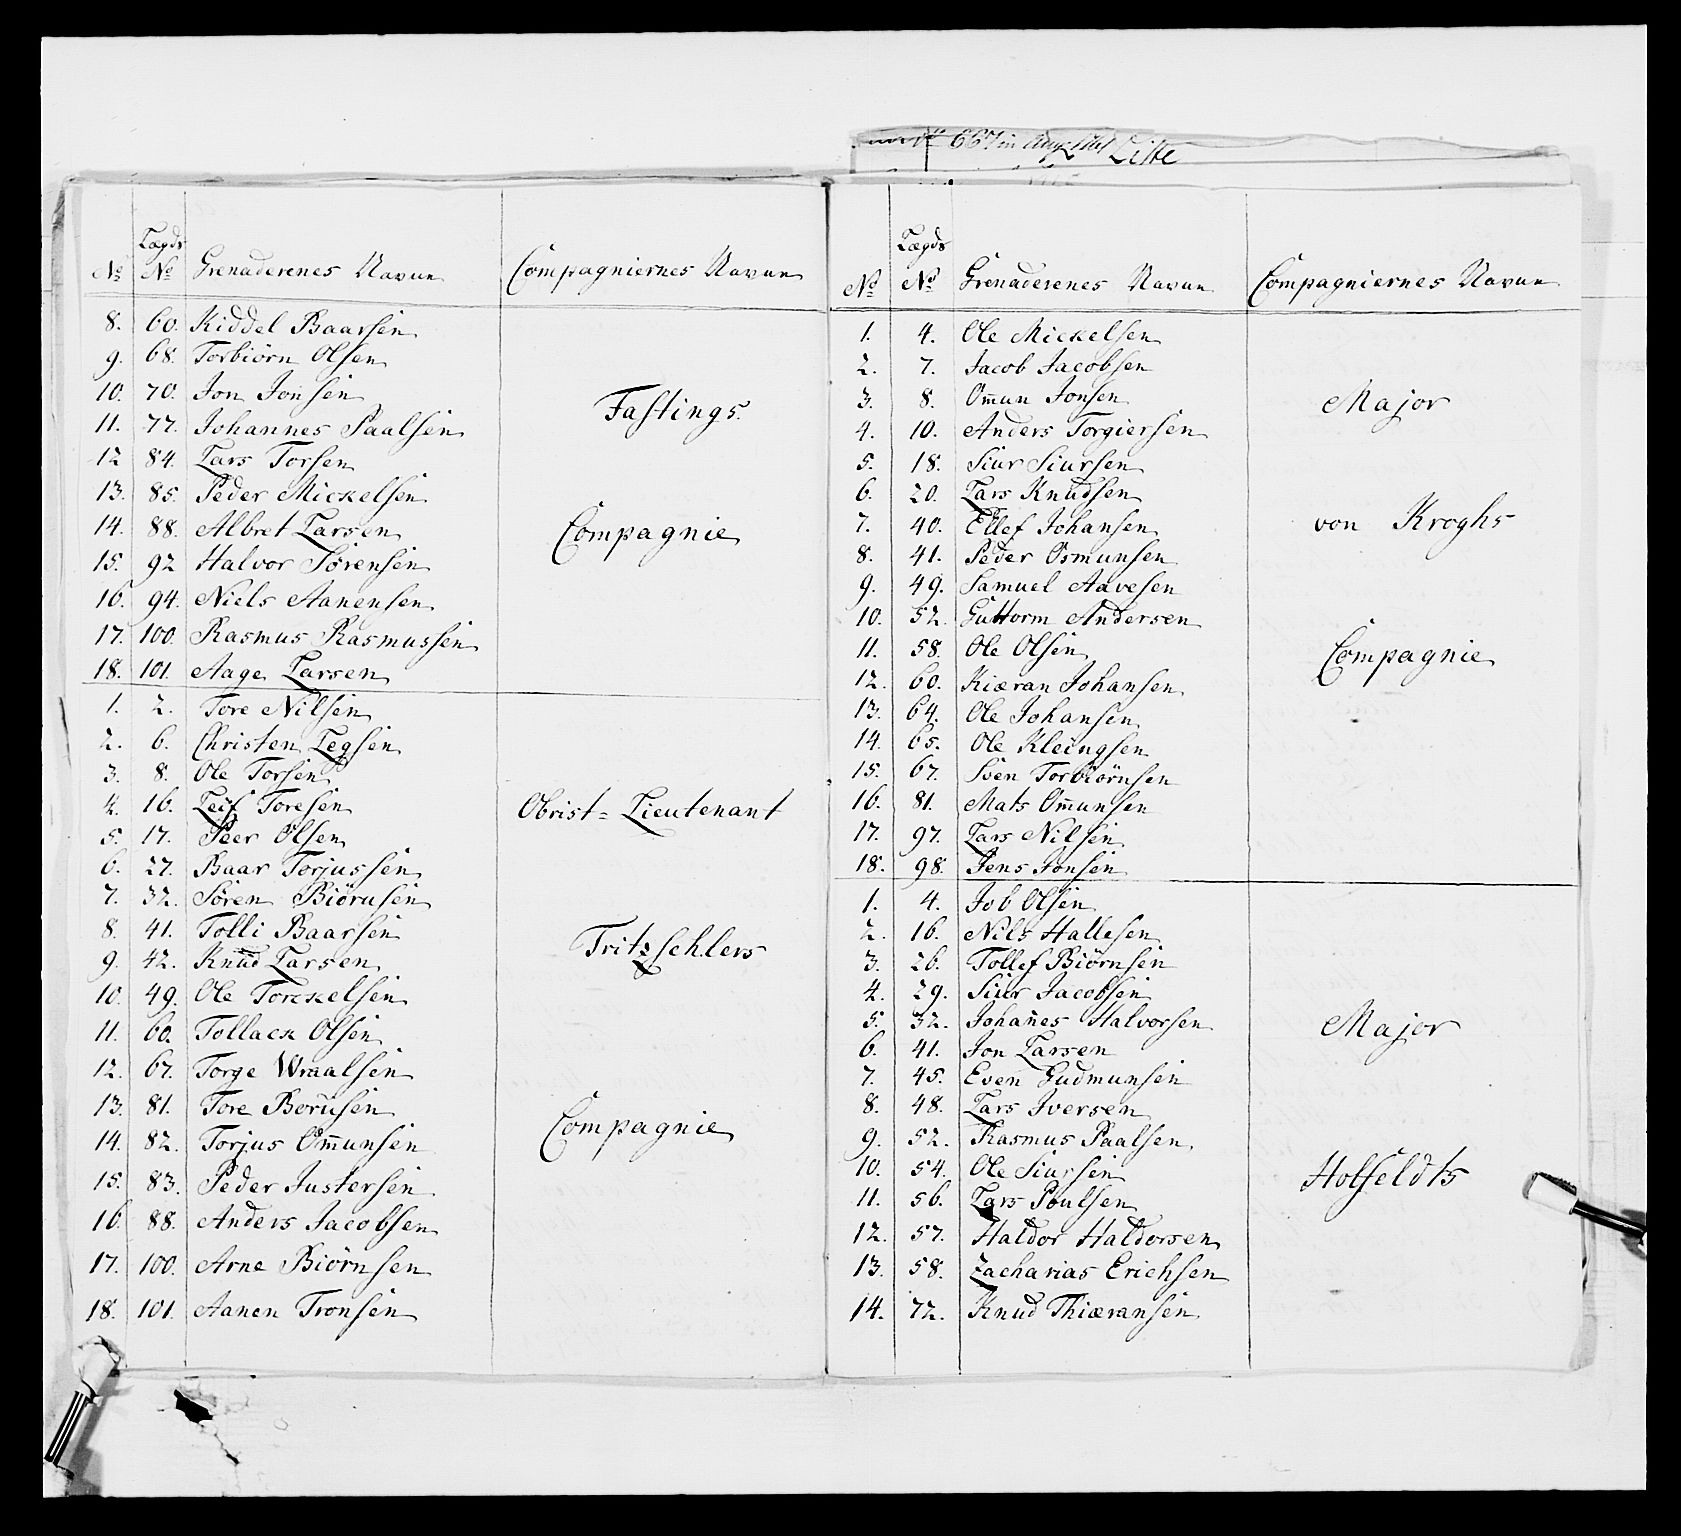 No 667 in Aug 1761 Liste
No | Lægds No | Grenaderenes Navne | Compagniernes Navne
8. 60. Kiddel Baarsen
9. 68. Torbiörn Olsen
10. 70. Jon Jonsen
11. 77. Johannes Paalsen
12 84. Lars Torsen
13. 85. Peder Mickelsen
14. 88. Albret Larsen
15. 92 Halvor Sörensen
16. 94. Niels Aanensen
17. 100. Rasmus Rasmussen
18. 101. Aage Larsen
Fastings
Compagnie
1. 2. Tore Nilsen
2. 6. Christen Legsen
3. 8. Ole Torsen
4. 16. Leif Toresen
5. 17. Peer Olsen
6. 27. Baar Torjussen
7. 32. Sören Biörnsen
8. 41. Tolli Baarsen
9. 42. Knud Larsen
10. 49. Ole Torckelsen
11. 60. Tollack Olsen
12. 67. Torge Wraalsen
13. 81. Tore Borusen
14. 82. Torjus Om̄unsen
15. 83. Peder Justersen
16. 88. Anders Jacobsen
17. 100. Arne Biörnsen
18. 101. Aanen Tronsen
Obrist=Lieutenant
Fritzschlers
Compagnie
No | Lægds No | Grenaderenes Navne | Compagniernes Navne
1. 4. Ole Mickelsen
2. 7. Jacob Jacobsen
3. 8. Om̄un Jonsen
4. 10. Anders Torgiersen
5. 18. Siur Siursen
6. 20. Lars Knudsen
7. 40. Ellef Johansen
8. 41. Peder Osmunsen
9. 49. Samuel Aavesen
10. 52. Guttorm Andersen
11. 58. Ole Olsen
12. 60. Kiæran Johansen
13. 64. Ole Johansen
14. 65. Ole Kleingsen
15. 67. Sven Torbiörnsen
16. 81. Mats Om̄unsen
17. 97. Lars Nilsen
18. 98. Jens Jonsen
Major
von Kroghs
Compagnie
1. 4. Job Olsen
2. 16. Nils Hallesen
3. 26. Tollef Biörnsen
4. 29. Siur Jacobsen
5. 32. Johan̄es Halvorsen
6. 41. Jon Larsen
7. 45. Even Gudmunsen
8. 48. Lars Iversen
9. 52. Rasmus Paalsen
10. 54. Ole Siursen
11. 56. Lars Poulsen
12. 57. Haldor Haldorsen
13. 58. Zacharias Erichsen
14. 72. Knud Thiæransen
Major
Holfeldts